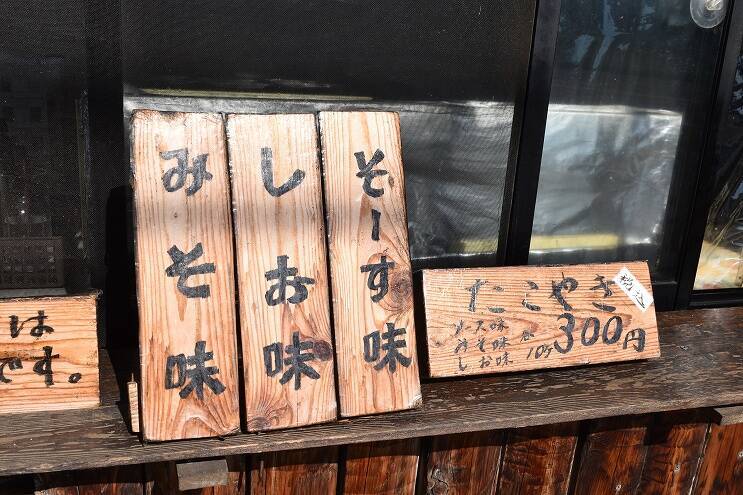 そーす味
しお味
みそ味
たこやき
税込
ソース味
みそ味
しお味
各
10ケ
300円
は
です。